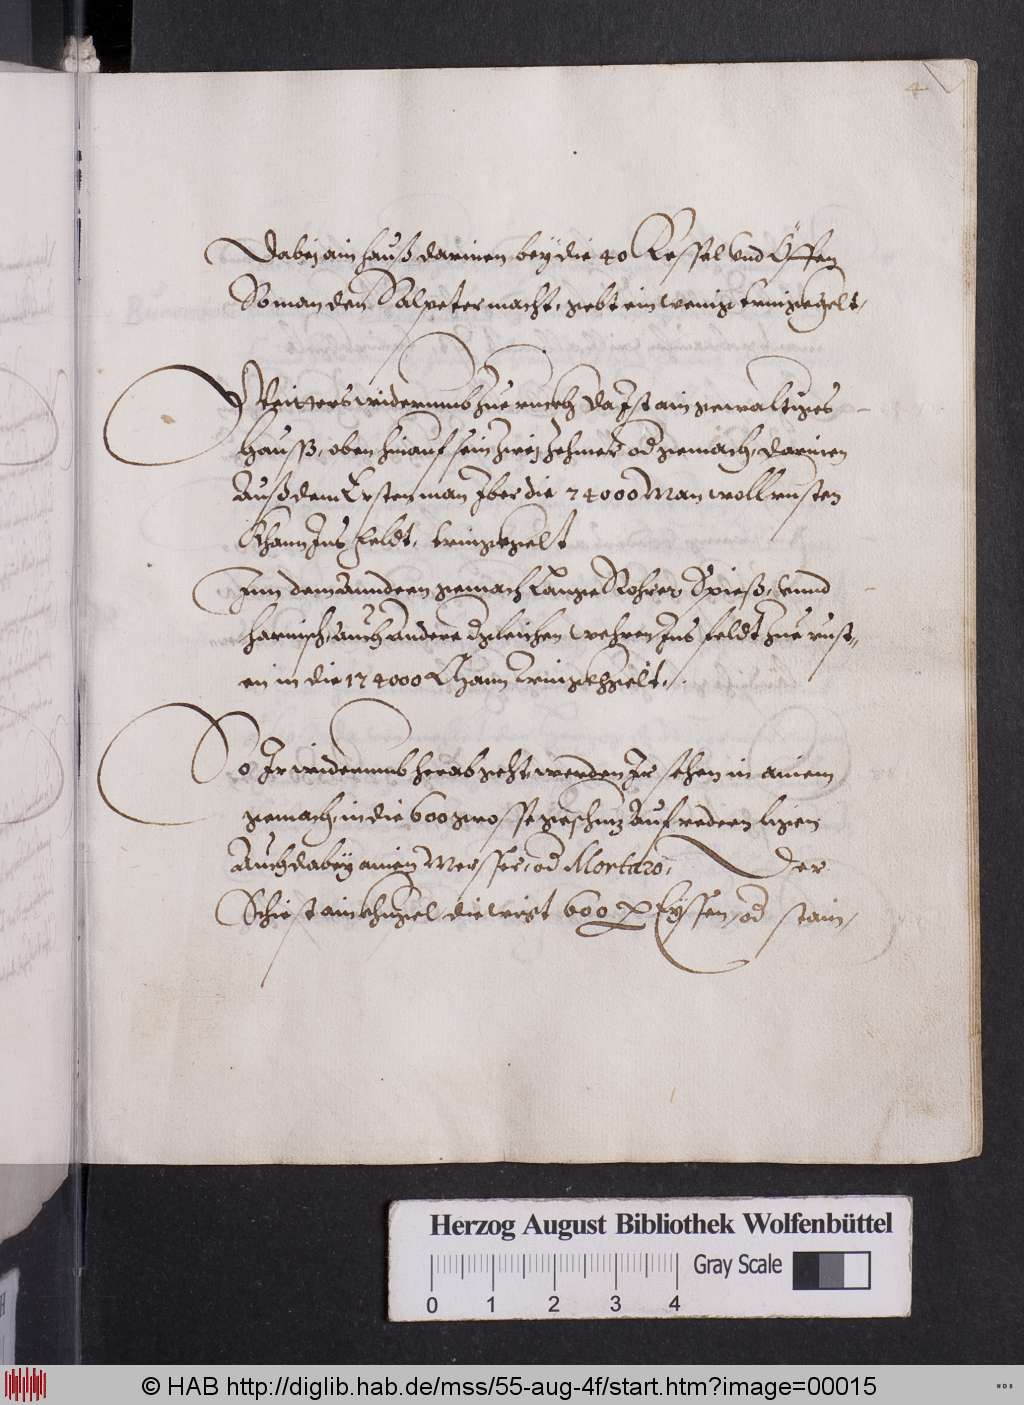 4
Dabej ain hauß darinen beÿ die 40 Kessel vnd Öffen
So man den Salpeter macht, gebt ein wenig trinckgelt,
Weitters widerumb zue ruckh Da Ist ain gewaltiges
hauss, oben hinauf sein zweÿ zehmer od gemach, darinen
Auß dem Ersten man Iber die 74000 Man woll rusten
Khann Ins feldt, trinckhgelt
Inn dem anndern gemach Lange Rohrer Spieß, vnnd
harnisch, auch andere dgleichen wehren Ins feldt zue rust„
en in die 174000 Khann Trinckhgelt,
So Ir widerumb herab geht, werden Ir sehen in ainem
gemach, in die 600 grosse geschuz Auf redern ligen
Auch dabeÿ ainen Mersser, od Mortaro, Der
Schiest ain khugel die wigt 600 ℔ Eÿssen, od stain,
Herzog August Bibliothek Wolfenbüttel
0 1 2 3 4 Gray Scale
© HAB http://diglib.hab.de/mss/55-aug-4f/start.htm?image=00015